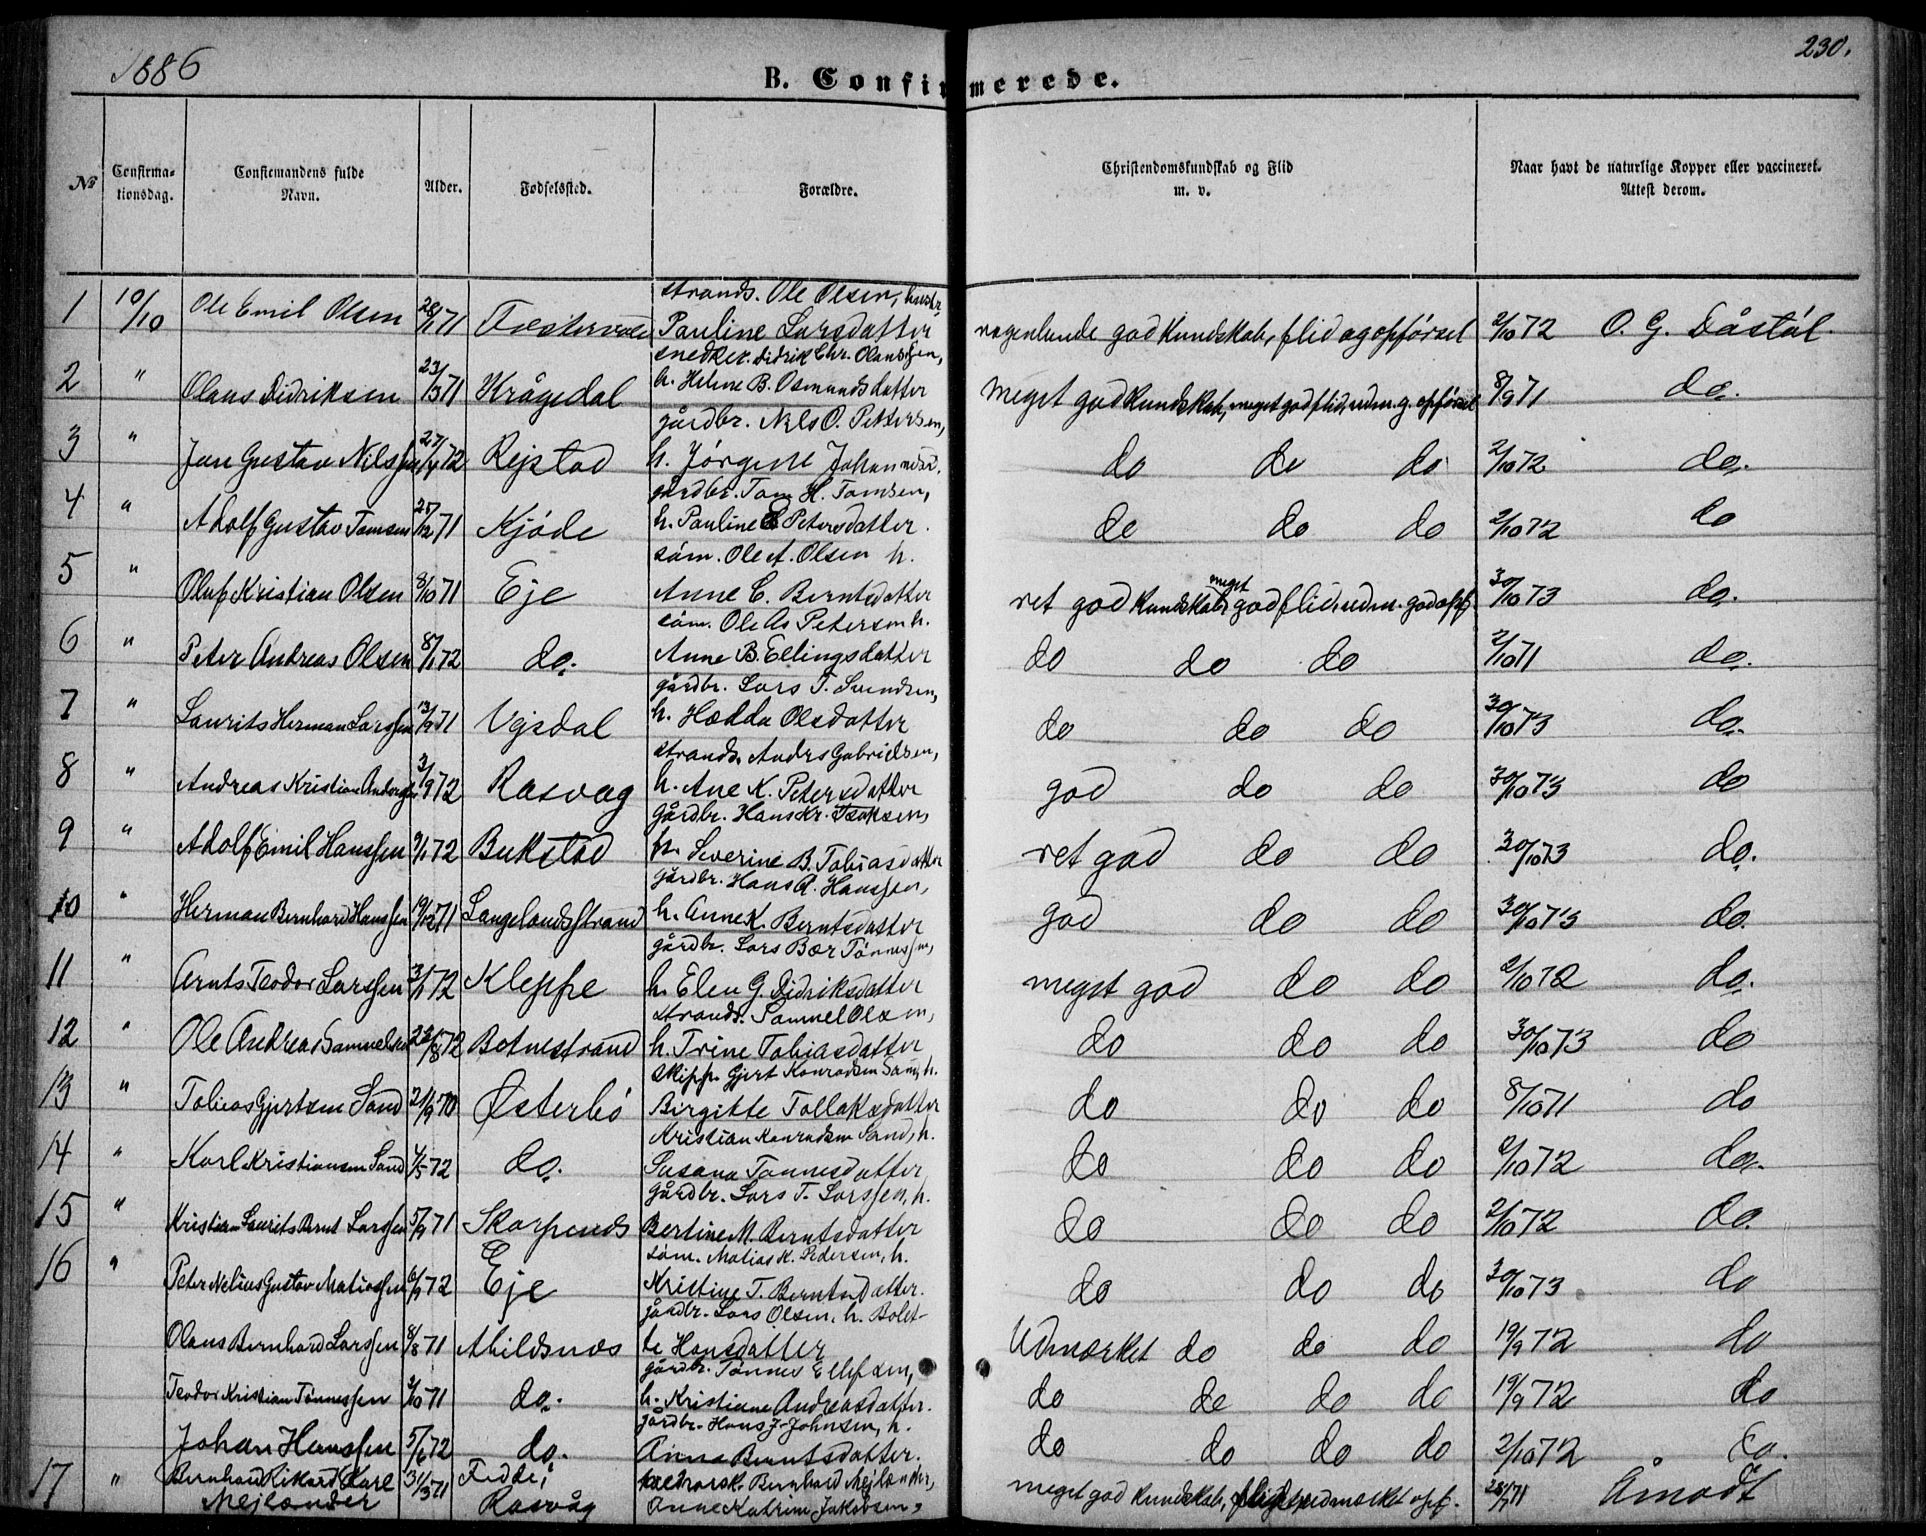 1886
230.
B. Confirmerede.
No
Confirma-
tionsdag.
Confirmandens fulde
Navn.
Alder.
Fødselssted.
Forældre.
Christendomskundskab og Flid
m. v.
Naar havt de naturlige Kopper eller vaccineret.
Attest derom.
strands. Ole Olsen, hustr.
1 10/10 Ole Emil Olsen 28/1 71 Pauline Larsdatter god kundskab, flid og opførsel 2/10 72 O. G. Dåstøl.
snedker. Didrik Chr. Olaussen,
2 " Olaus Didriksen 23/3 71 Krågedal h. Helene B. Osmundsdatter meget god kundskab, meget god flid, udm. g. opførsel 8/9 71 do.
gårdbr. Nils O. Pettersen,
3 " Jan Gustav Nilssen 27/4 72 Rejstad h. Jørgine Johannesd. do do do 2/10 72 do.
gårdbr. Tom H. Tomsen,
4 " Adolf Gustav Tomsen 25/12 71 Kjøde h. Pauline E Petersdatter. do do do 2/10 72 do
søm. Ole A. Olsen h.
5 " Oluf Kristian Olsen 8/10 71 Eje Anne C. Berntsdatter ret god kundskab, meget god flid, udm. god opf. 30/10 73 do.
søm. Ole As Petersen h.
6 " Peter Andreas Olsen 8/1 72 do. Anne B. Ellingsdatter do do do 2/10 71 do.
gårdbr. Lars T. Svendsen,
7 " Laurits Herman Larssen 13/9 71 Vgisdal h. Hædda Olsdatter do do do 30/10 73 do.
strands. Andrs Gabrielsen,
8 " Andreas Kristian Anderssen 3/9 72 Rasvåg h. Ane K. Petersdatter god do do 30/10 73 do
gårdbr. Hans Kr. Isaksen,
9 " Adolf Emil Hanssen 9/1 72 Bukstad h. Severine B. Tobiasdatter ret god do do 30/10 73 do.
gårdbr. Hans A. Hanssen,
10 " Herman Bernhard Hanssen 19/12 71 Langelandsstrand h. Anne K. Berntsdatter god do do 30/10 73 do.
gårdbr. Lars Bær Tønnessen,
11 " Arnts Teodor Larssen 3/1 72 Kleppe h. Elen G. Didriksdatter meget god do do 2/10 72 do.
strands. Samuel Olsen,
12 " Ole Andreas Samuelsen 22/8 72 Botnestrand h. Trine Tobiasdatter do do do 30/10 73 do
skipp. Gjert Konradsen Sand, h.
13 " Tobias Gjertsen Sand 21/9 70 Østerbø Birgitte Tollaksdatter do do do 8/10 71 do
Kristian Konradsen Sand, h.
14 " Karl Kristiansen Sand 4/5 72 do. Susana Tønnesdatter do do do 2/10 72 do.
gårdbr. Lars T. Larssen, h.
15 " Kristian Laurits Bernt Larssen 5/9 71 Skarpenes Bertine M. Berntsdatter do do do 2/10 72 do.
søm. Matias K. Pedersen, h.
16 " Peter Nelius Gustav Matiassen 6/9 72 Eje Kristine T. Berntsdatter. do do do 30/10 73 do
gårdbr. Lars Olsen, h. Bolet-
Olaus Bernhard Larssen 8/8 71 Abildsnæs te Hansdatter Udmærket do do do 19/9 72 do
gårdbr. Tønnes Ellefsen,
Teodor Kristian Tønnessen 2/10 71 do. h. Kristiane Andreasdatter. do do do do 19/9 72 do
gårdbr. Hans J. Johnsen, h.
Johan Hanssen 5/6 72 do. Anna Berntsdatter. do do do do 2/10 72 do.
17 " Bernhard Rikard Karl 31/3 71 Fedde, Bernhard Mejlænder, meget god kundskab, flid, udmærket opf. 28/7 71 Åmodt
Mejlænder Rasvåg Anne Katrine Jakobsen,